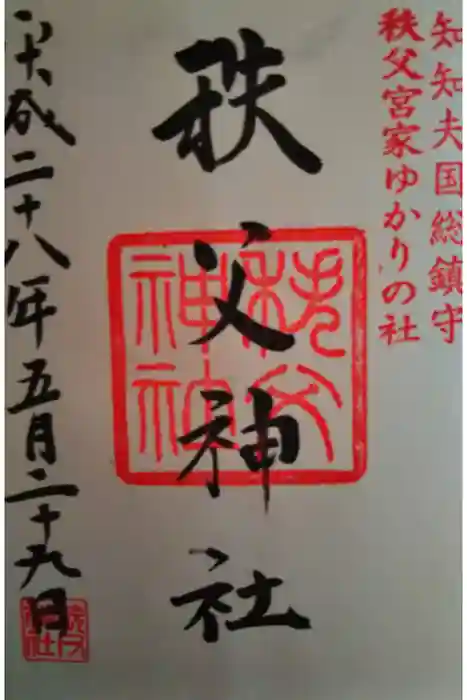 知知夫国総鎮守
秩父宮家ゆかりの社
秩父神社
秩父
神社
平成二十八年五月二十九日